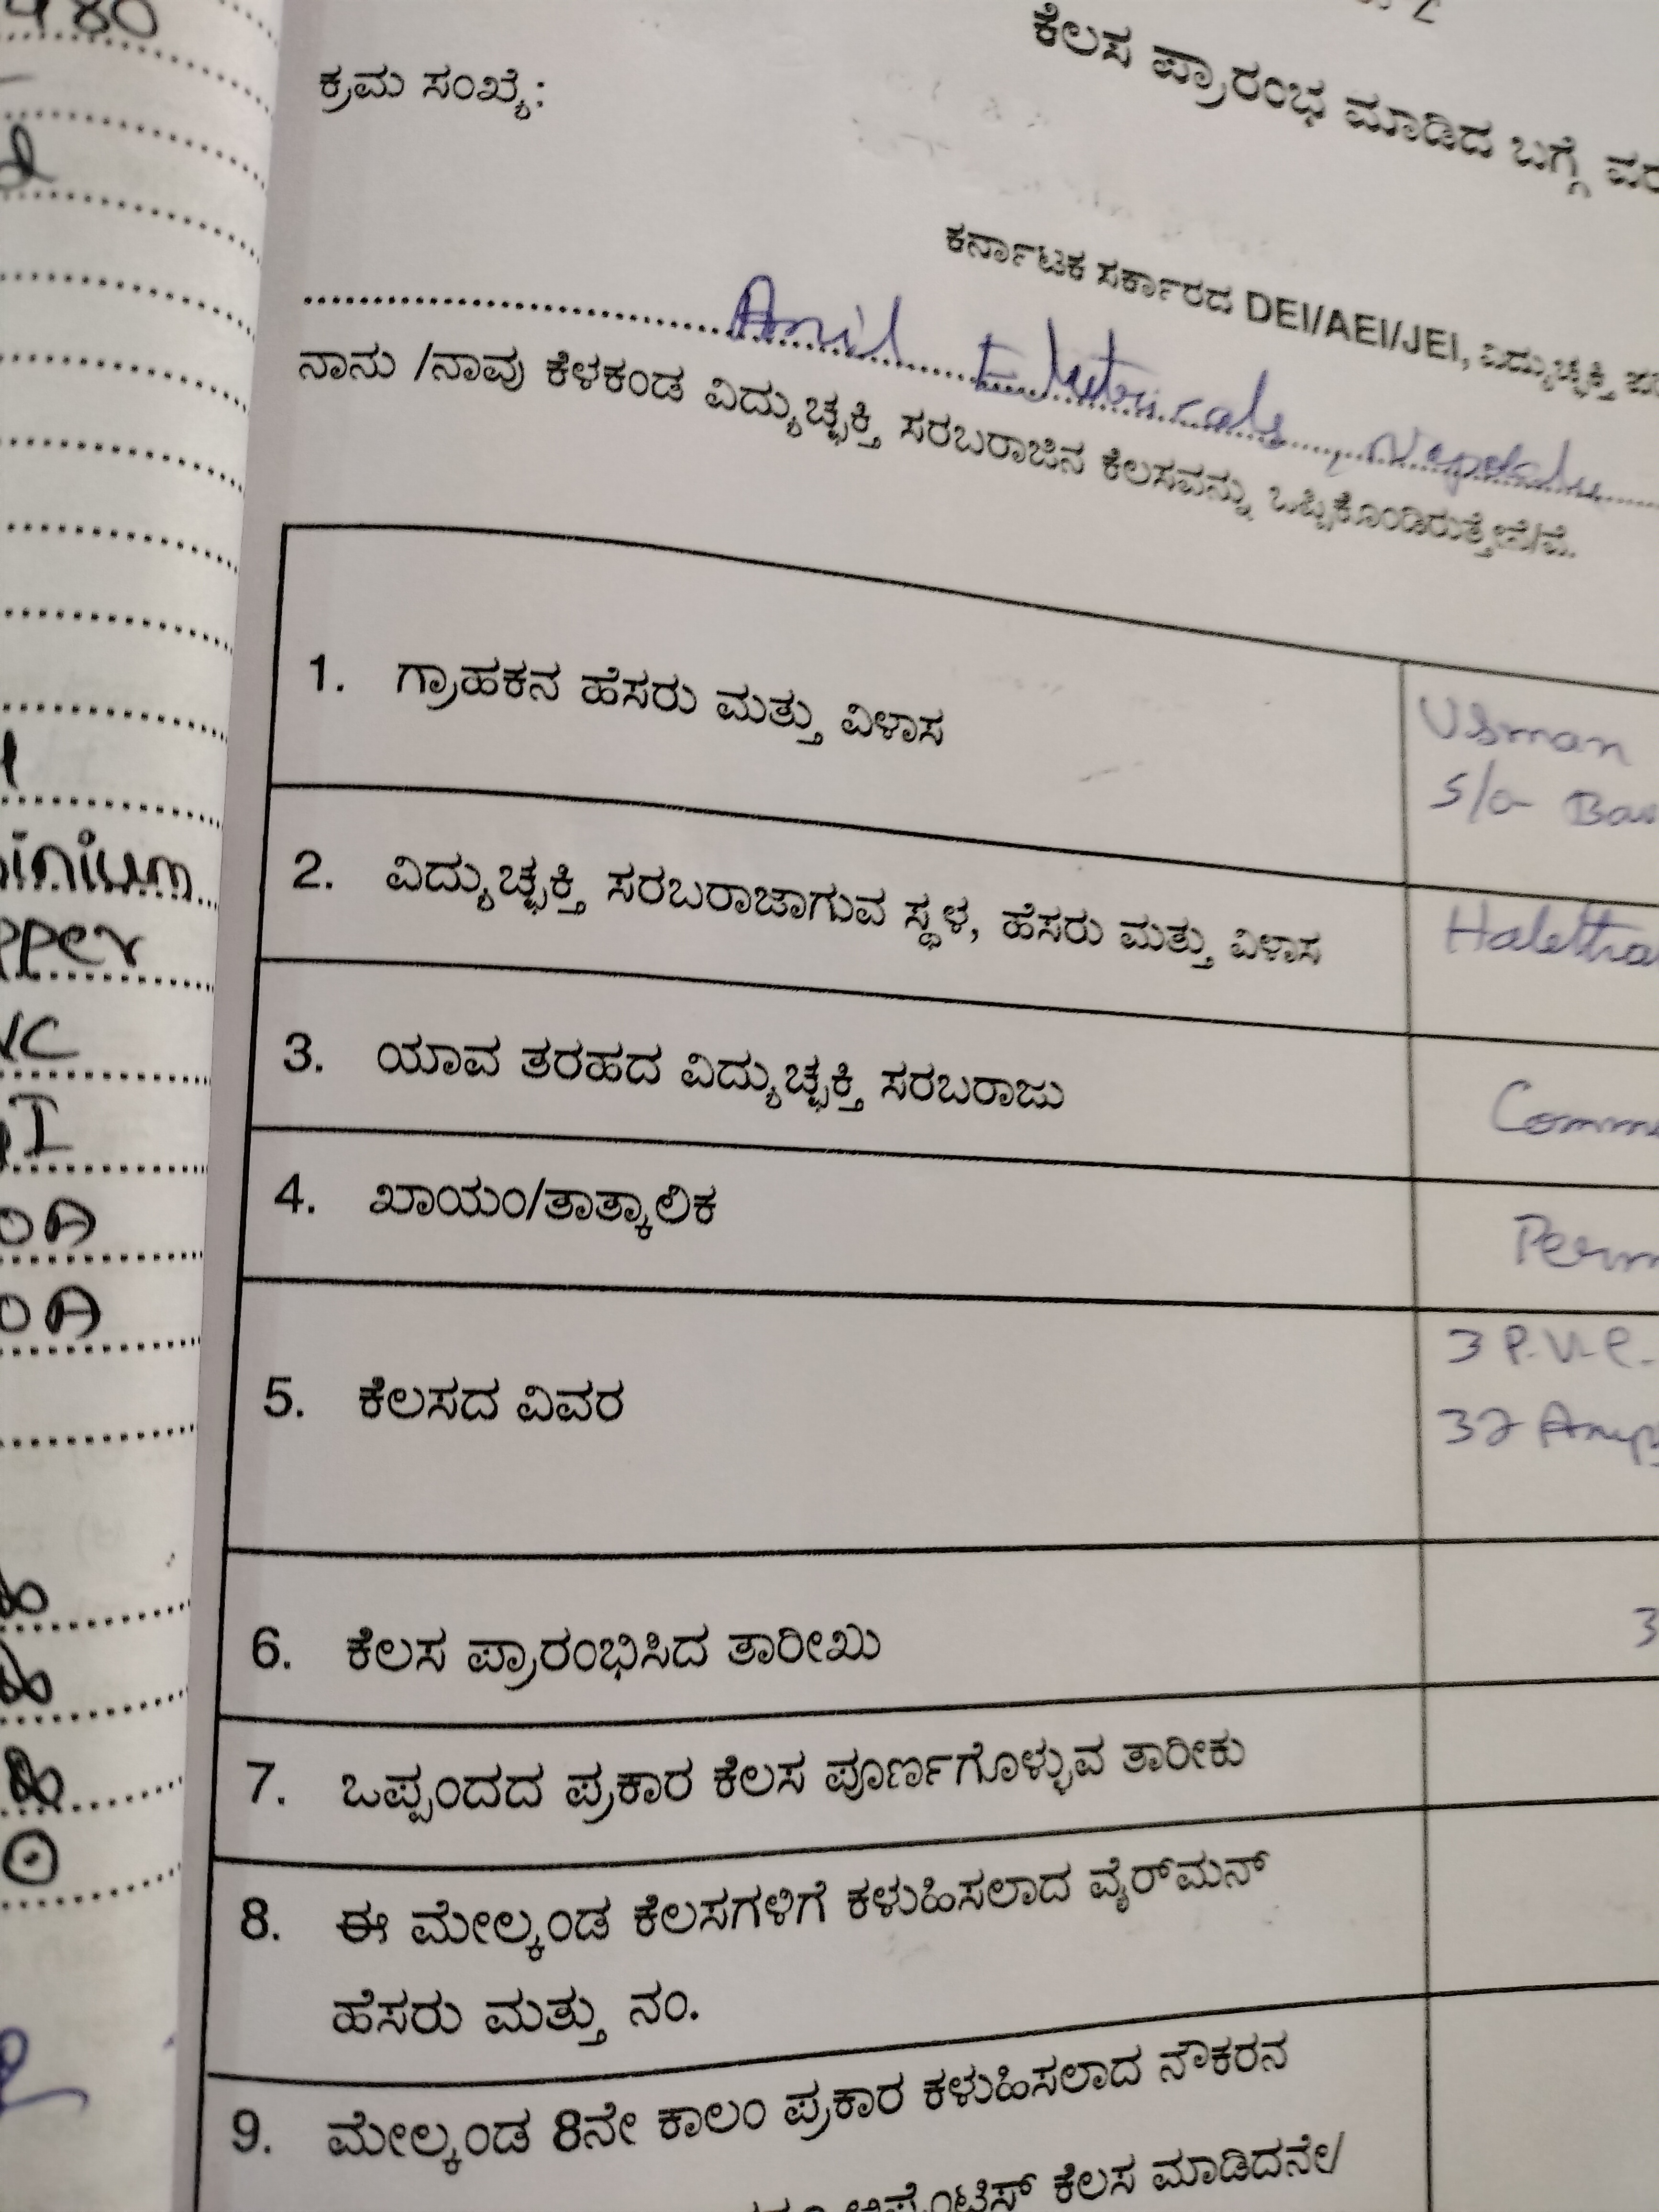 480
ಕೆಲಸ ಪ್ರಾರಂಭ ಮಾಡಿದ ಬಗ್ಗೆ
ಕ್ರಮ ಸಂಖ್ಯೆ:
ಕರ್ನಾಟಕ ಸರ್ಕಾರದ DEI/AEI/JEI, ವಿದ್ಯುಚ್ಛಕ್ತಿ
Anil Eletricals, Napoklu
ನಾನು /ನಾವು ಕೆಳಕಂಡ ವಿದ್ಯುಚ್ಛಕ್ತಿ ಸರಬರಾಜಿನ ಕೆಲಸವನ್ನು ಒಪ್ಪಿಕೊಂಡಿರುತ್ತೇನೆ/ವೆ.
1. ಗ್ರಾಹಕನ ಹೆಸರು ಮತ್ತು ವಿಳಾಸ
Usman
S/o Bas
2. ವಿದ್ಯುಚ್ಛಕ್ತಿ ಸರಬರಾಜಾಗುವ ಸ್ಥಳ, ಹೆಸರು ಮತ್ತು ವಿಳಾಸ
Halettha
3. ಯಾವ ತರಹದ ವಿದ್ಯುಚ್ಛಕ್ತಿ ಸರಬರಾಜು
Comme
4. ಖಾಯಂ/ತಾತ್ಕಾಲಿಕ
Perm
5. ಕೆಲಸದ ವಿವರ
3 P.V.C.
32 Amp
6. ಕೆಲಸ ಪ್ರಾರಂಭಿಸಿದ ತಾರೀಖು
3
7. ಒಪ್ಪಂದದ ಪ್ರಕಾರ ಕೆಲಸ ಪೂರ್ಣಗೊಳ್ಳುವ ತಾರೀಕು
8. ಈ ಮೇಲ್ಕಂಡ ಕೆಲಸಗಳಿಗೆ ಕಳುಹಿಸಲಾದ ವೈರ್‌ಮನ್
ಹೆಸರು ಮತ್ತು ನಂ.
9. ಮೇಲ್ಕಂಡ 8ನೇ ಕಾಲಂ ಪ್ರಕಾರ ಕಳುಹಿಸಲಾದ ನೌಕರನ
ಕೆಲಸ ಮಾಡಿದನೇ/
inium
pper
VC
GI
0A
0A